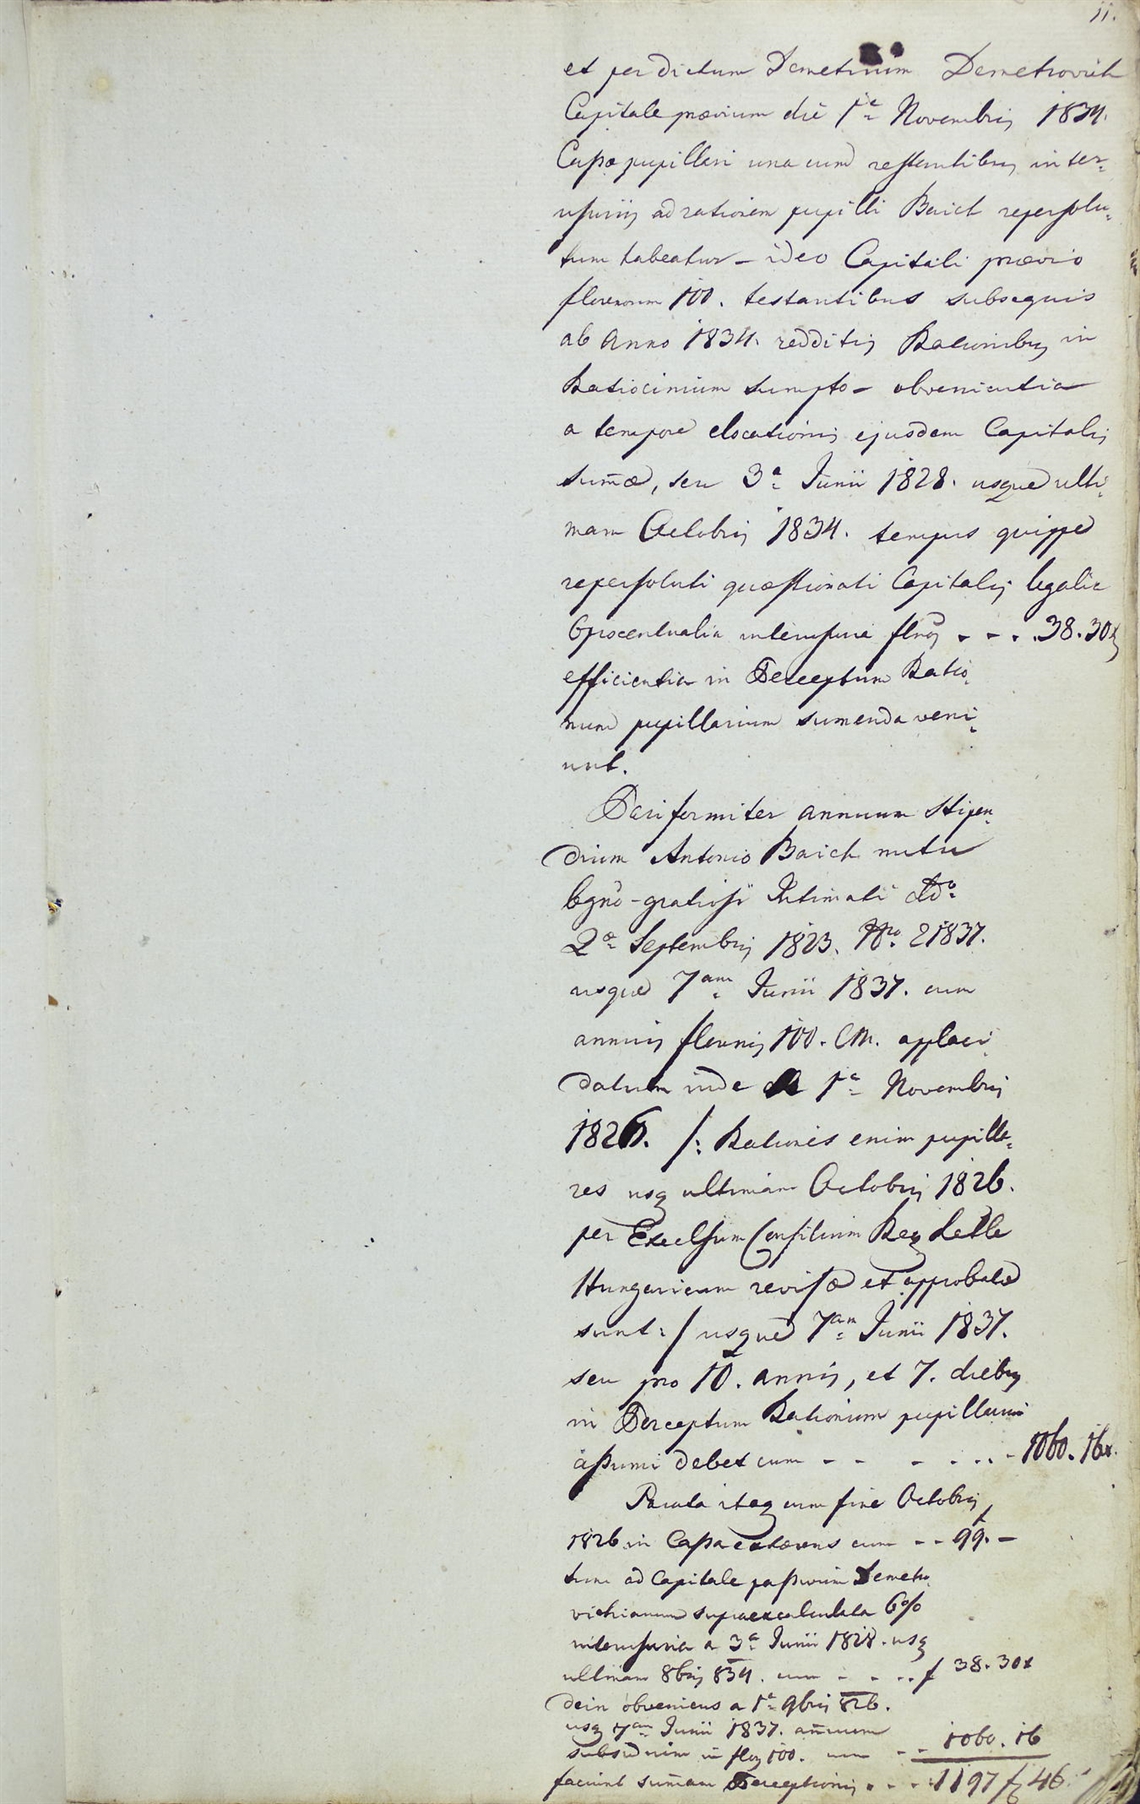 11.
et per dictum Demetrium Demetrovich
Capitale praevium die 1a Novembris 1834.
Cassae pupillari una cum restantibus inter-
usuriis ad rationem pupilli Baich repersolu-
tum habeatur – ideo Capitali praevio
florenorum 100. testantibus subsequis
ab anno 1834. redditis Rationibus in
Ratiocinium sumpto – obvenientia
a tempore elocationis ejusdem Capitalis
sumae, seu 3a Junii 1828. usque ulti-
mam Octobris 1834. tempus quippe
repersoluti quaestionati Capitalis legalia
6procentualia interusuria flnos - - - . 38. 30x
efficientia in Perceptum Ratio-
num pupillarium sumenda veni-
unt.
Pariformiter annuum stipen-
dium Antonio Baich nutu
bgno-gratiosi Intimati ddo
2a Septembris 1823. Nro 21837.
usque 7am Junii 1837. cum
annuis florenis 100. CM. applaci-
datum inde a 1a Novembris
1826. /: Rationes enim pupilla-
res usq ultimam Octobris 1826.
per Excelsum Consilium Reg Lttle
Hungaricum revisae et approbatae
sunt :/ usque 7am Junii 1837.
seu pro 10. annis, et 7. diebus
in Perceptum Rationum pupillarium
assumi debet cum - - - - - - - 1060. 16x.
Parata itaq cum fine Octobris
1826 in Cassa extaens cum - - 99. –
tum ad Capitale passivum Demetro-
vichianum supraexcalculata 6%
interusuria a 3a Junii 1828. usq
ultimam 8bris 834. cum - - - - f 38. 30x
dein obveniens a 1a 9bris 826.
usq 7am Junii 1837. anuum
subsidium in flos 100. cum - - 1060. 16
faciunt sumam Perceptionis - - - 1197 f 46